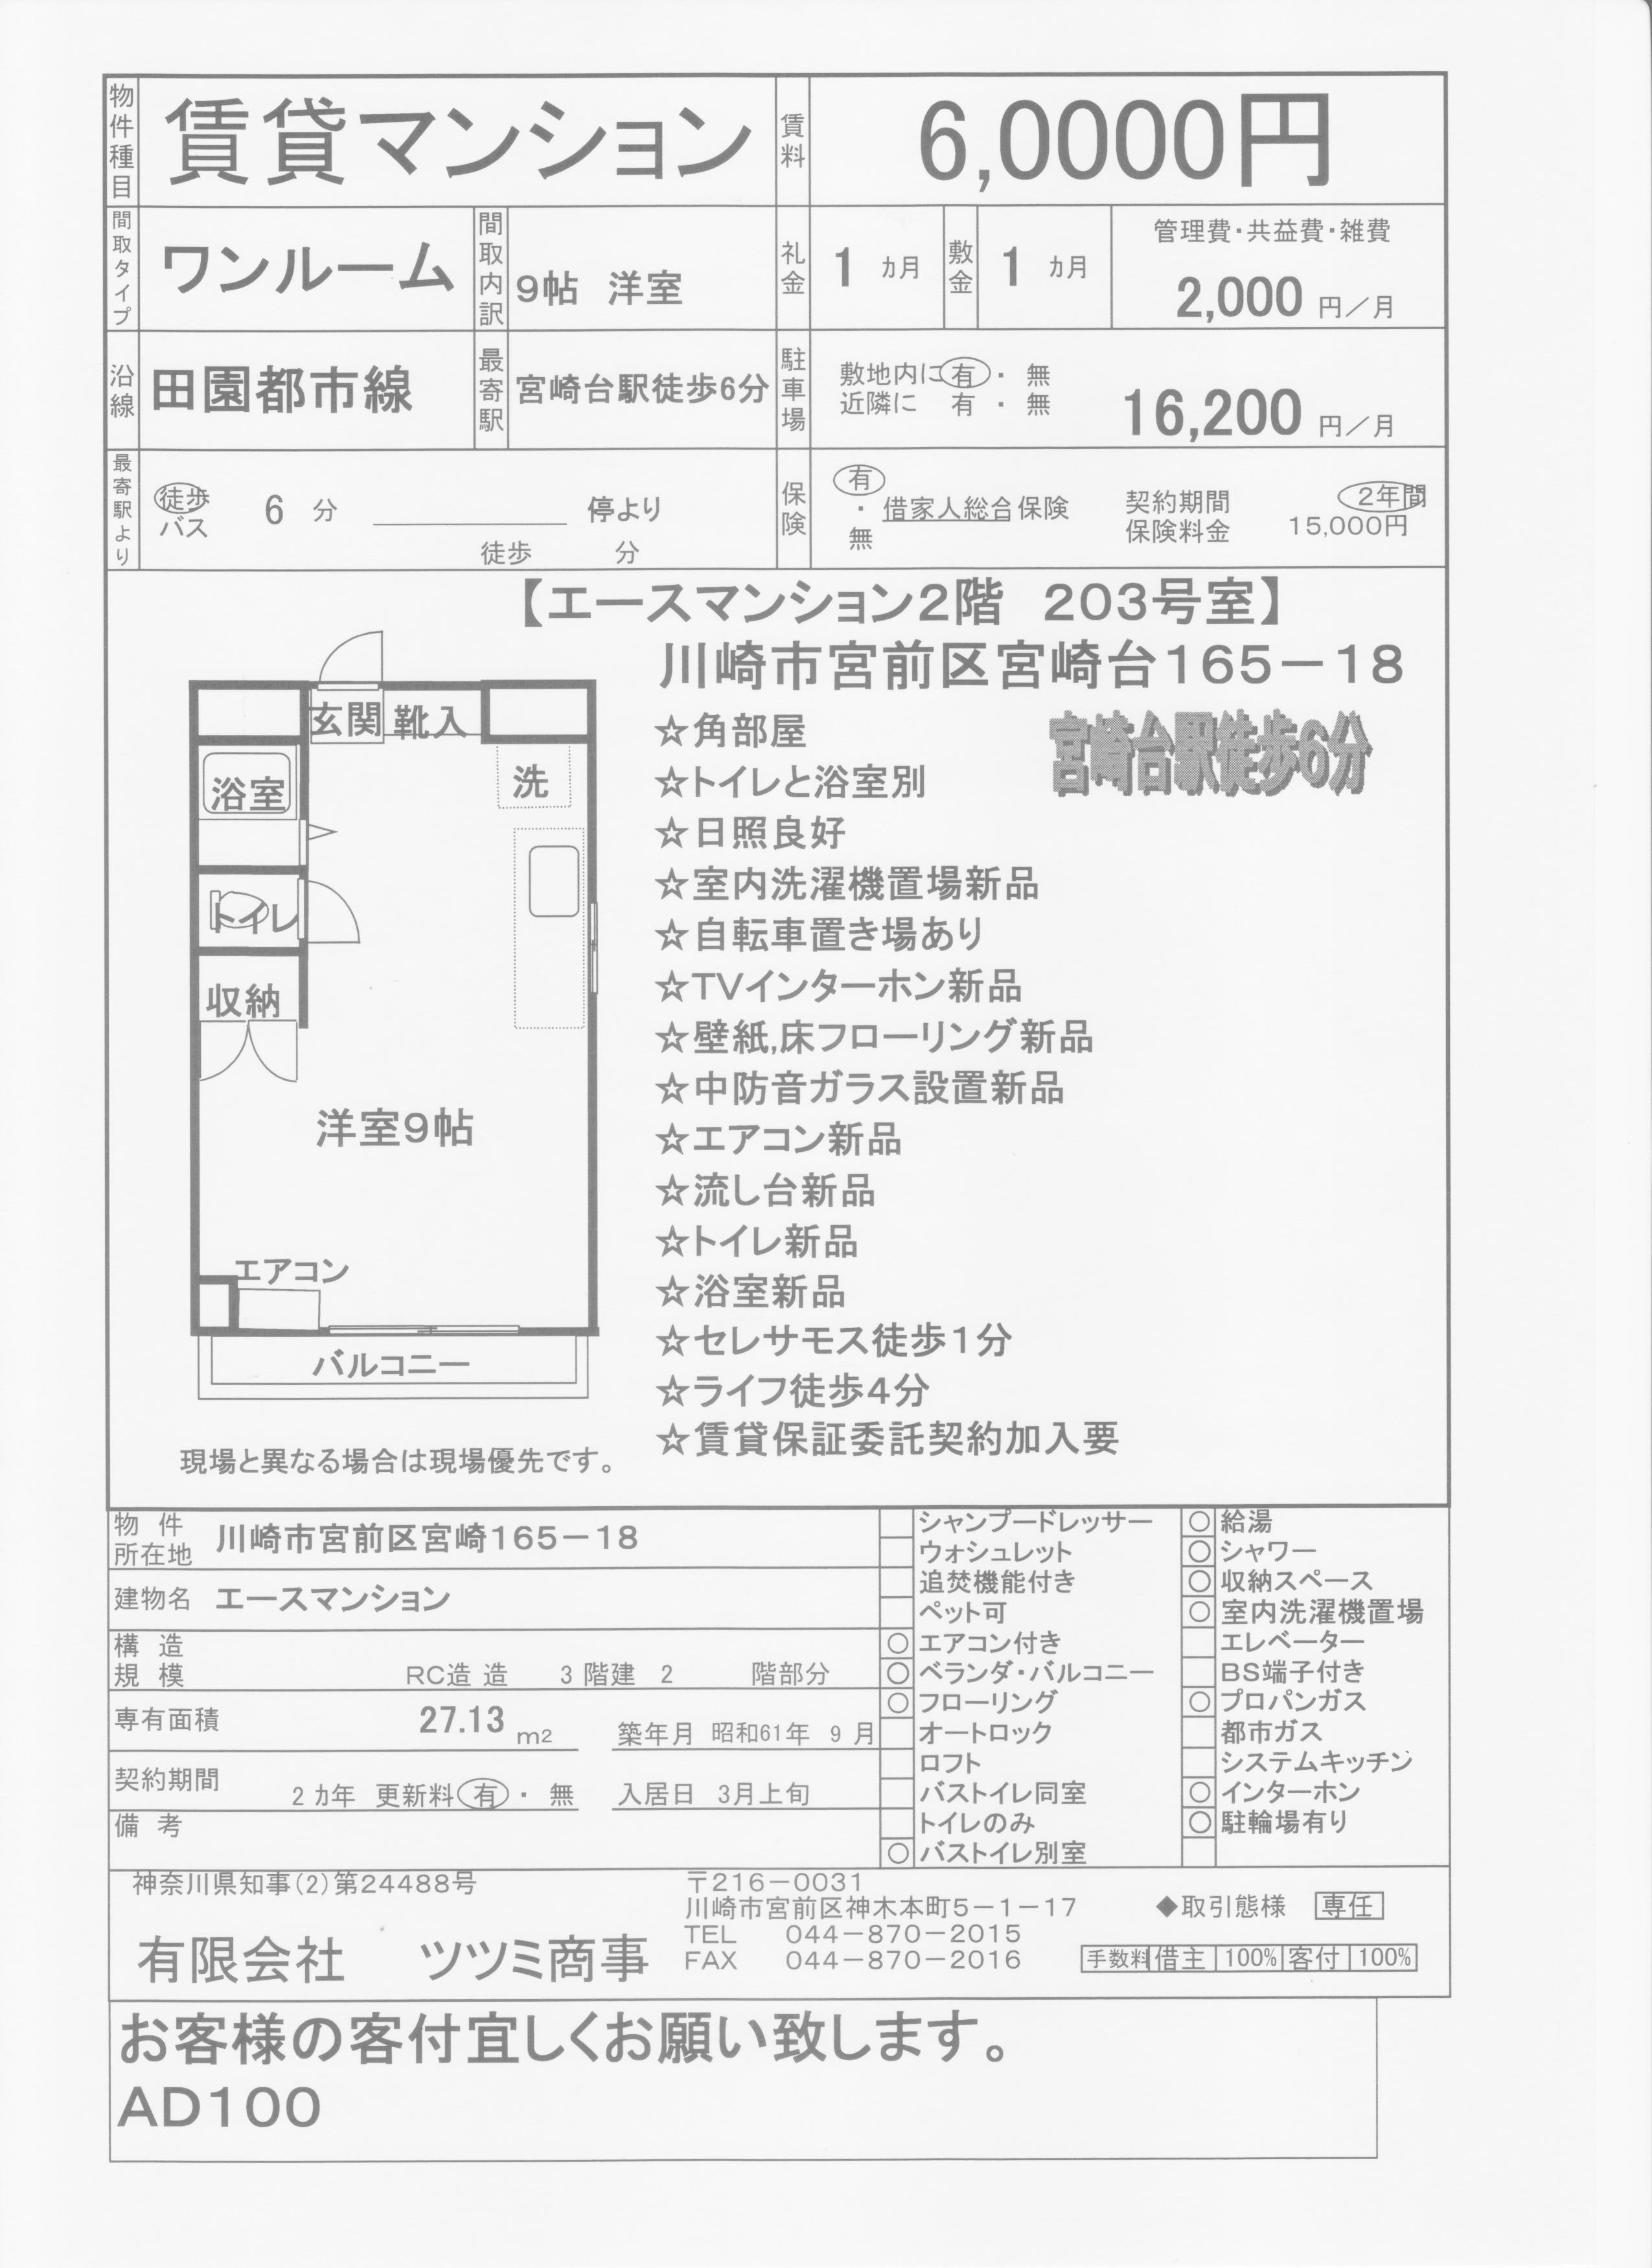 物件種目
賃貸マンション
賃料
6,0000円
間取タイプ
ワンルーム
間取内訳
9帖 洋室
礼金
1 カ月
敷金
1 カ月
管理費・共益費・雑費
2,000 円／月
沿線
田園都市線
最寄駅
宮崎台駅徒歩6分
駐車場
敷地内に 有 ・ 無
近隣に 有 ・ 無
16,200 円／月
最寄駅より
徒歩 6 分 停より
バス
徒歩 分
保険
有
・
無
借家人総合保険
契約期間 2年間
保険料金 15,000円
【エースマンション2階 203号室】
川崎市宮前区宮崎台165－18
宮崎台駅徒歩6分
玄関
靴入
浴室
洗
トイレ
収納
洋室9帖
エアコン
バルコニー
現場と異なる場合は現場優先です。
☆角部屋
☆トイレと浴室別
☆日照良好
☆室内洗濯機置場新品
☆自転車置き場あり
☆TVインターホン新品
☆壁紙,床フローリング新品
☆中防音ガラス設置新品
☆エアコン新品
☆流し台新品
☆トイレ新品
☆浴室新品
☆セレサモス徒歩1分
☆ライフ徒歩4分
☆賃貸保証委託契約加入要
物件
所在地
川崎市宮前区宮崎165－18
建物名 エースマンション
構造
規模
RC造 造 3 階建 2 階部分
専有面積 27.13 m2 築年月 昭和61年 9 月
契約期間 2 カ年 更新料 有 ・ 無 入居日 3月上旬
備考
シャンプードレッサー
ウォシュレット
追焚機能付き
ペット可
○ エアコン付き
○ ベランダ・バルコニー
○ フローリング
オートロック
ロフト
バストイレ同室
トイレのみ
○ バストイレ別室
○ 給湯
○ シャワー
○ 収納スペース
○ 室内洗濯機置場
エレベーター
BS端子付き
○ プロパンガス
都市ガス
システムキッチン
○ インターホン
○ 駐輪場有り
神奈川県知事(2)第24488号
有限会社 ツツミ商事
〒216－0031
川崎市宮前区神木本町5－1－17
TEL 044－870－2015
FAX 044－870－2016
◆取引態様 専任
手数料 借主 100% 客付 100%
お客様の客付宜しくお願い致します。
AD100